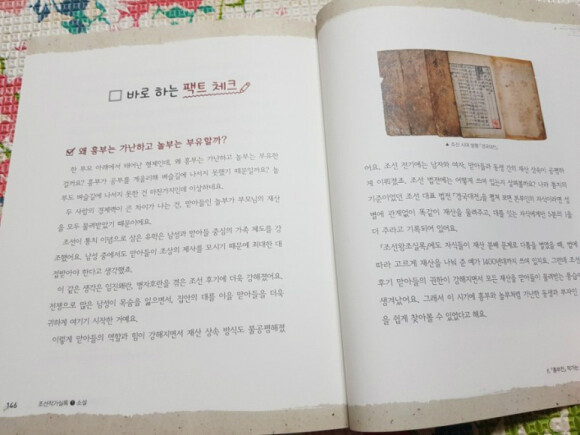 바로 하는 팩트 체크
왜 흥부는 가난하고 놀부는 부유할까?
한 부모 아래에서 태어난 형제인데, 왜 흥부는 가난하고 놀부는 부유한
걸까요? 흥부가 공부를 게을리해 벼슬길에 나서지 못했기 때문일까요? 놀
부도 벼슬길에 나서지 못한 건 마찬가지인데 이상하네요.
두 사람의 경제력이 큰 차이가 나는 건, 맏아들인 놀부가 부모님의 재산
을 모두 물려받았기 때문이에요.
조선이 통치 이념으로 삼은 유학은 남성과 맏아들 중심의 가족 제도를 강
조했어요. 남성 중에서도 맏아들이 조상의 제사를 모시기 때문에 최대한 대
접받아야 한다고 생각했죠.
이 같은 생각은 임진왜란, 병자호란을 겪은 조선 후기에 더욱 강해졌어요.
전쟁으로 많은 남성이 목숨을 잃으면서, 집안의 대를 이을 맏아들을 더욱
귀하게 여기기 시작한 거예요.
이렇게 맏아들의 역할과 힘이 강해지면서 재산 상속 방식도 불공평해졌
146
조선희가실록 소설
▲ 조선 시대 법전 『경국대전』
어요. 조선 전기에는 남자와 여자, 맏아들과 동생 간의 재산 상속이 공평하
게 이뤄졌죠. 조선 법전에는 어떻게 쓰여 있는지 살펴볼까요? 나라 통치의
기준이었던 조선 대표 법전 『경국대전』을 펼쳐 보면 본부인의 자식이라면 성
별에 관계없이 똑같이 재산을 물려주고, 대를 잇는 자식에게만 5분의 1을
더 주라고 기록되어 있어요.
『조선왕조실록』에도 자식들이 재산 분배 문제로 다툼을 벌였을 때, 법에
따라 고르게 재산을 나눠 준 예가 1400년대까지 쓰여 있지요. 그런데 조선
후기 맏아들의 권한이 강해지면서 모든 재산을 맏아들이 물려받는 풍습이
생겨났어요. 그래서 이 시기에 흥부와 놀부처럼 가난한 동생과 부자인
을 쉽게 찾아볼 수 있었다고 해요.